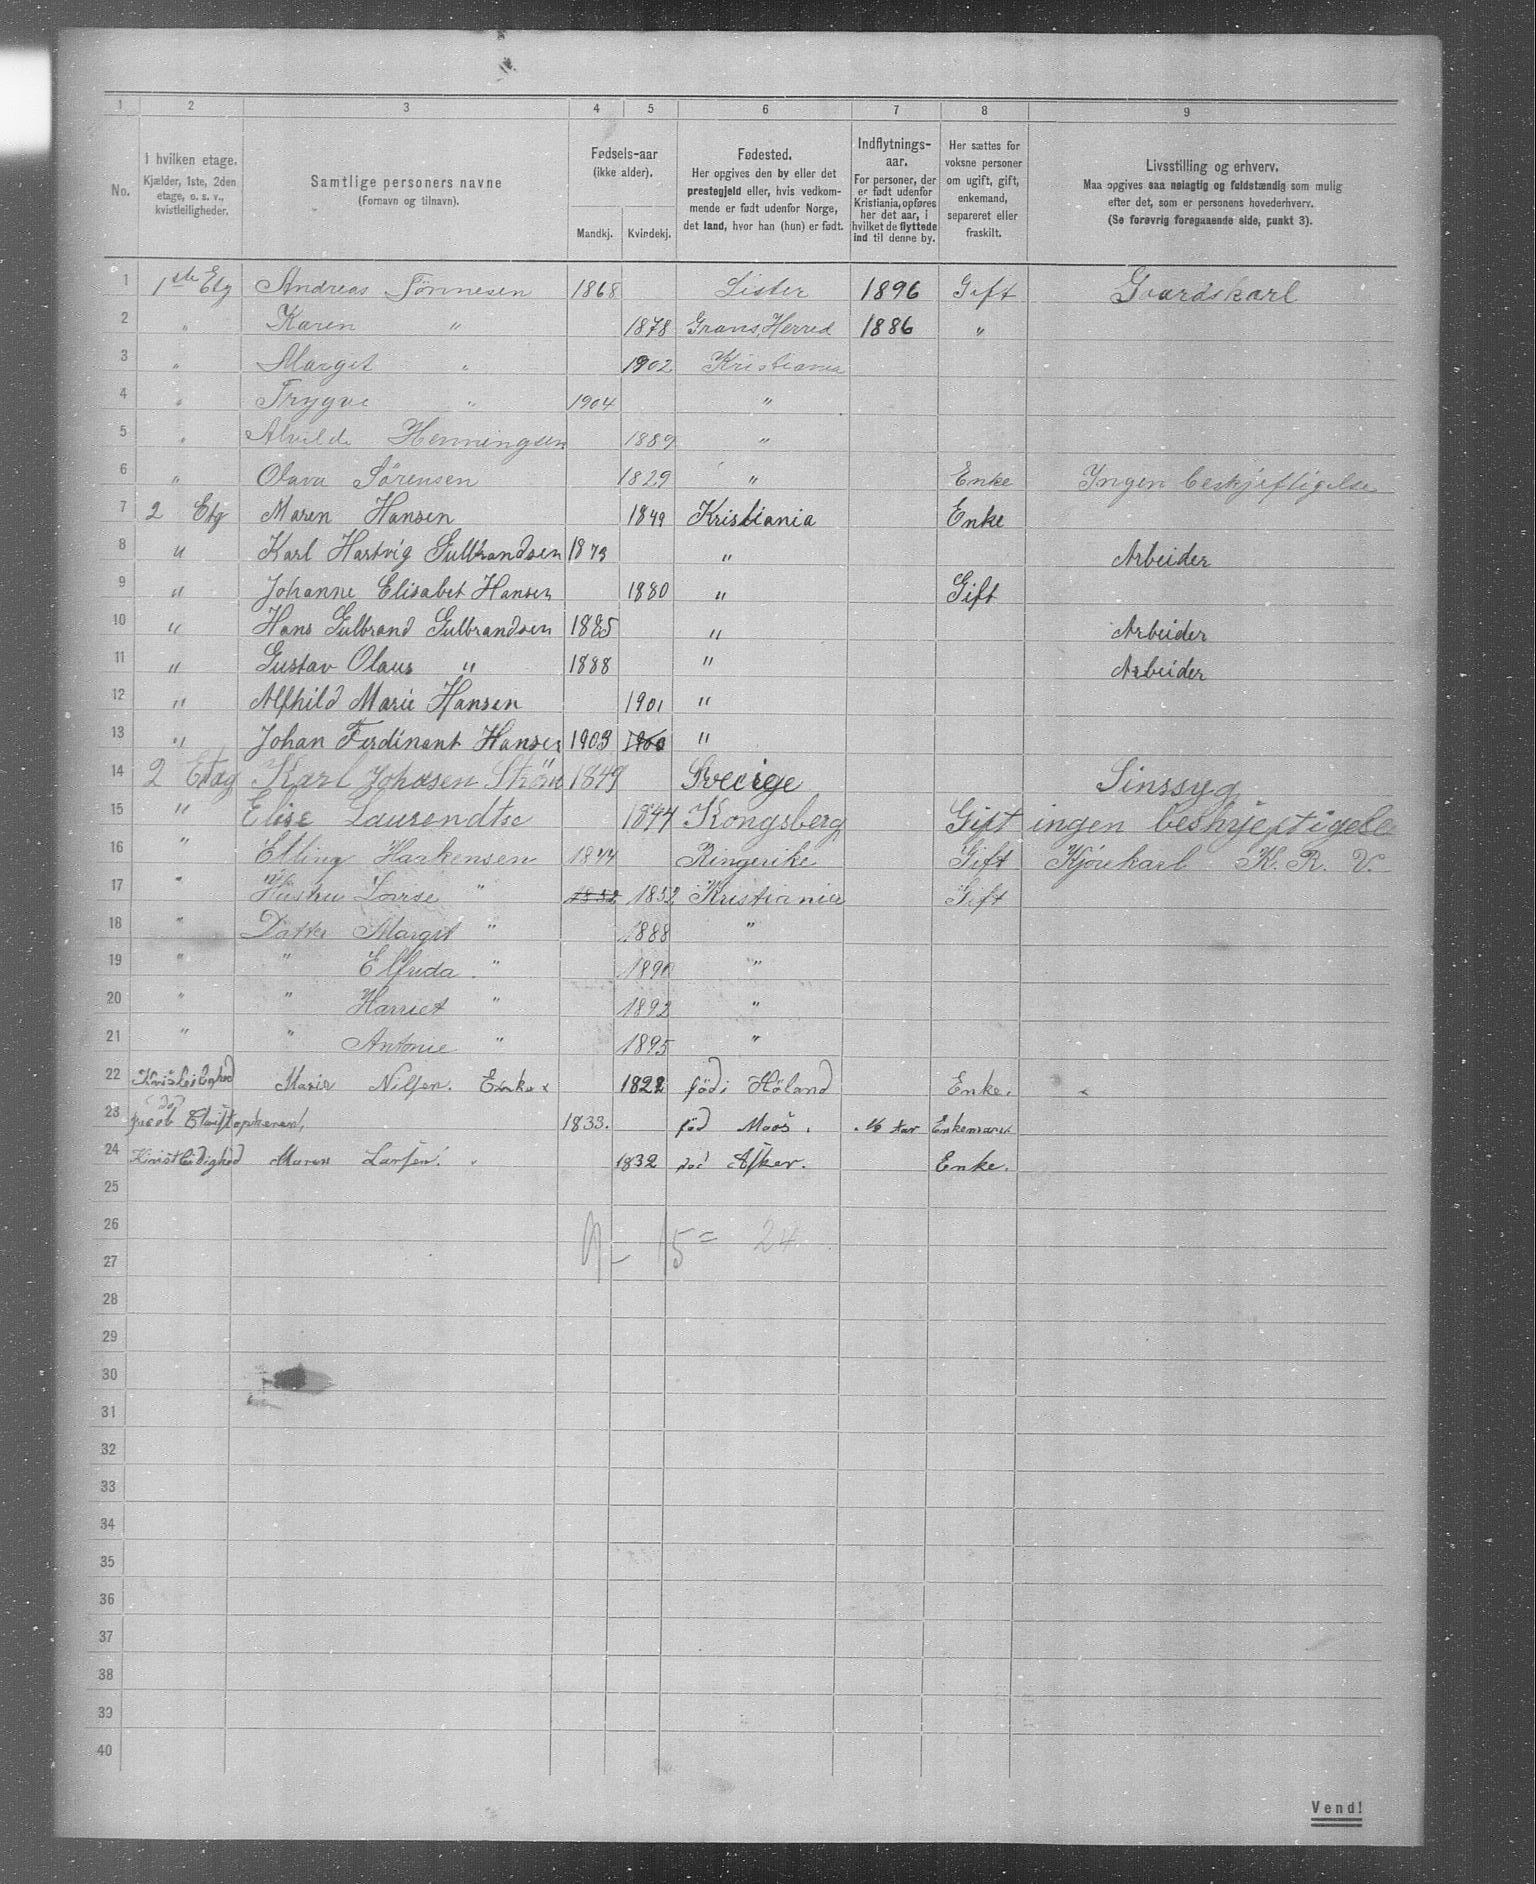 1 2 3 4 5 6 7 8 9
No.
I hvilken etage.
Kjælder, 1ste, 2den
etage, o. s. v.,
kvistleiligheder.
Samtlige personers navne
(Fornavn og tilnavn).
Fødsels-aar
(ikke alder).
Mandkj. Kvindekj.
Fødested.
Her opgives den by eller det
prestegjeld eller, hvis vedkom-
mende er født udenfor Norge,
det land, hvor han (hun) er født.
Indflytnings-
aar.
For personer, der
er født udenfor
Kristiania, opføres
her det aar, i
hvilket de flyttede
ind til denne by.
Her sættes for
voksne personer
om ugift, gift,
enkemand,
separeret eller
fraskilt.
Livsstilling og erhverv.
Maa opgives saa nøiagtig og fuldstændig som mulig
efter det, som er personens hovederhverv.
(Se forøvrig foregaaende side, punkt 3).
1 1ste Etg Andreas Tönnesen 1868 Lister 1896 Gift Gaardskarl
2 " Karen " 1878 Grans Herred 1886 "
3 " Margit " 1902 Kristiania
4 " Trygve " 1904 "
5 " Alvilde Henningsen 1889 "
6 " Olava Sørensen 1829 " Enke Ingen beskjeftigelse
7 2 Etg Maren Hansen 1849 Kristiania Enke
8 " Karl Hartvig Gulbrandsen 1873 " Arbeider
9 " Johanne Elisabet Hansen 1880 " Gift
10 " Hans Gulbrand Gulbrandsen 1885 " Arbeider
11 " Gustav Olaus " 1888 " Arbeider
12 " Alfhild Marie Hansen 1901 "
13 " Johan Ferdinant Hansen 1903 "
14 2 Etag Karl Johasen Ström 1849 Sveeige Sinssyg
15 " Elise Laurendtse 1844 Kongsberg Gift ingen beskjeftigelse
16 " Elling Haakensen 1844 Ringerike Gift Kjørekarl K. R. V.
17 " Hustru Lovise " 1852 1852 Kristiania Gift
18 " Datter Margit " 1888 "
19 " " Elfrida " 1890 "
20 " " Harriet " 1892 "
21 " " Antonie " 1895 "
22 Marie Nilsen. Enke 1822 föd i Höland Enke.
23 Jacob 1833. föd Moss.
24 Maren Larsen. 1832 föd Asker. Enke.
25
26
9 - 15 = 24
27
28
29
30
31
32
33
34
35
36
37
38
39
40
Vend!